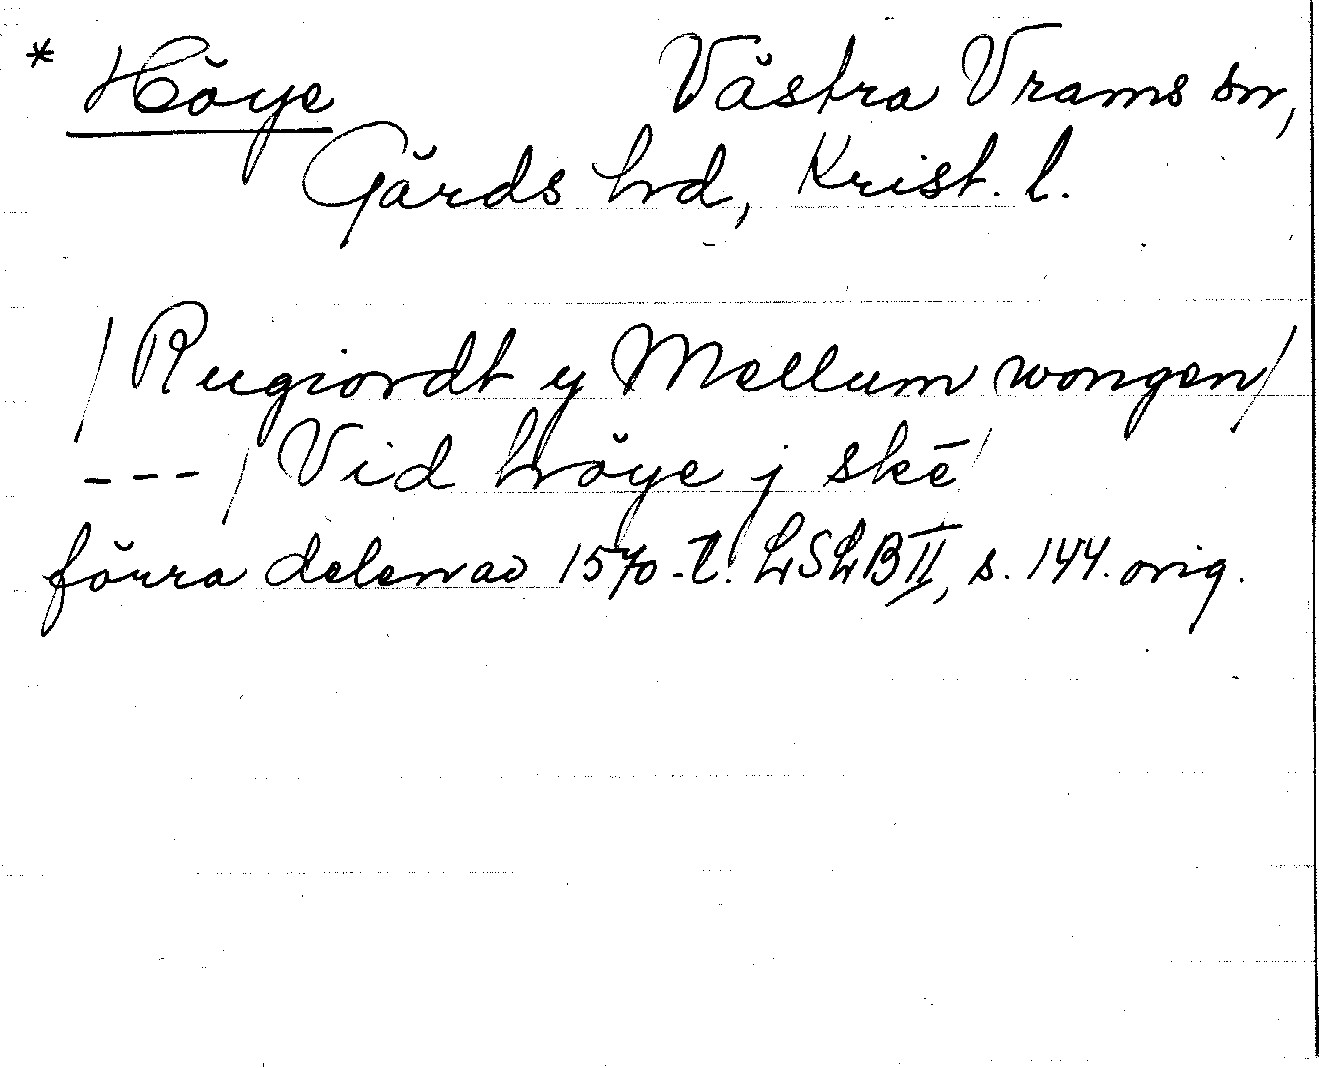 * Höye Västra Vrams sn,
Gärds hrd, Krist. l.
/Rugiordt y Mellum wongen/
---/Vid höye j skē/
förra delen av 1570-t. LSLB II, s. 144. orig.